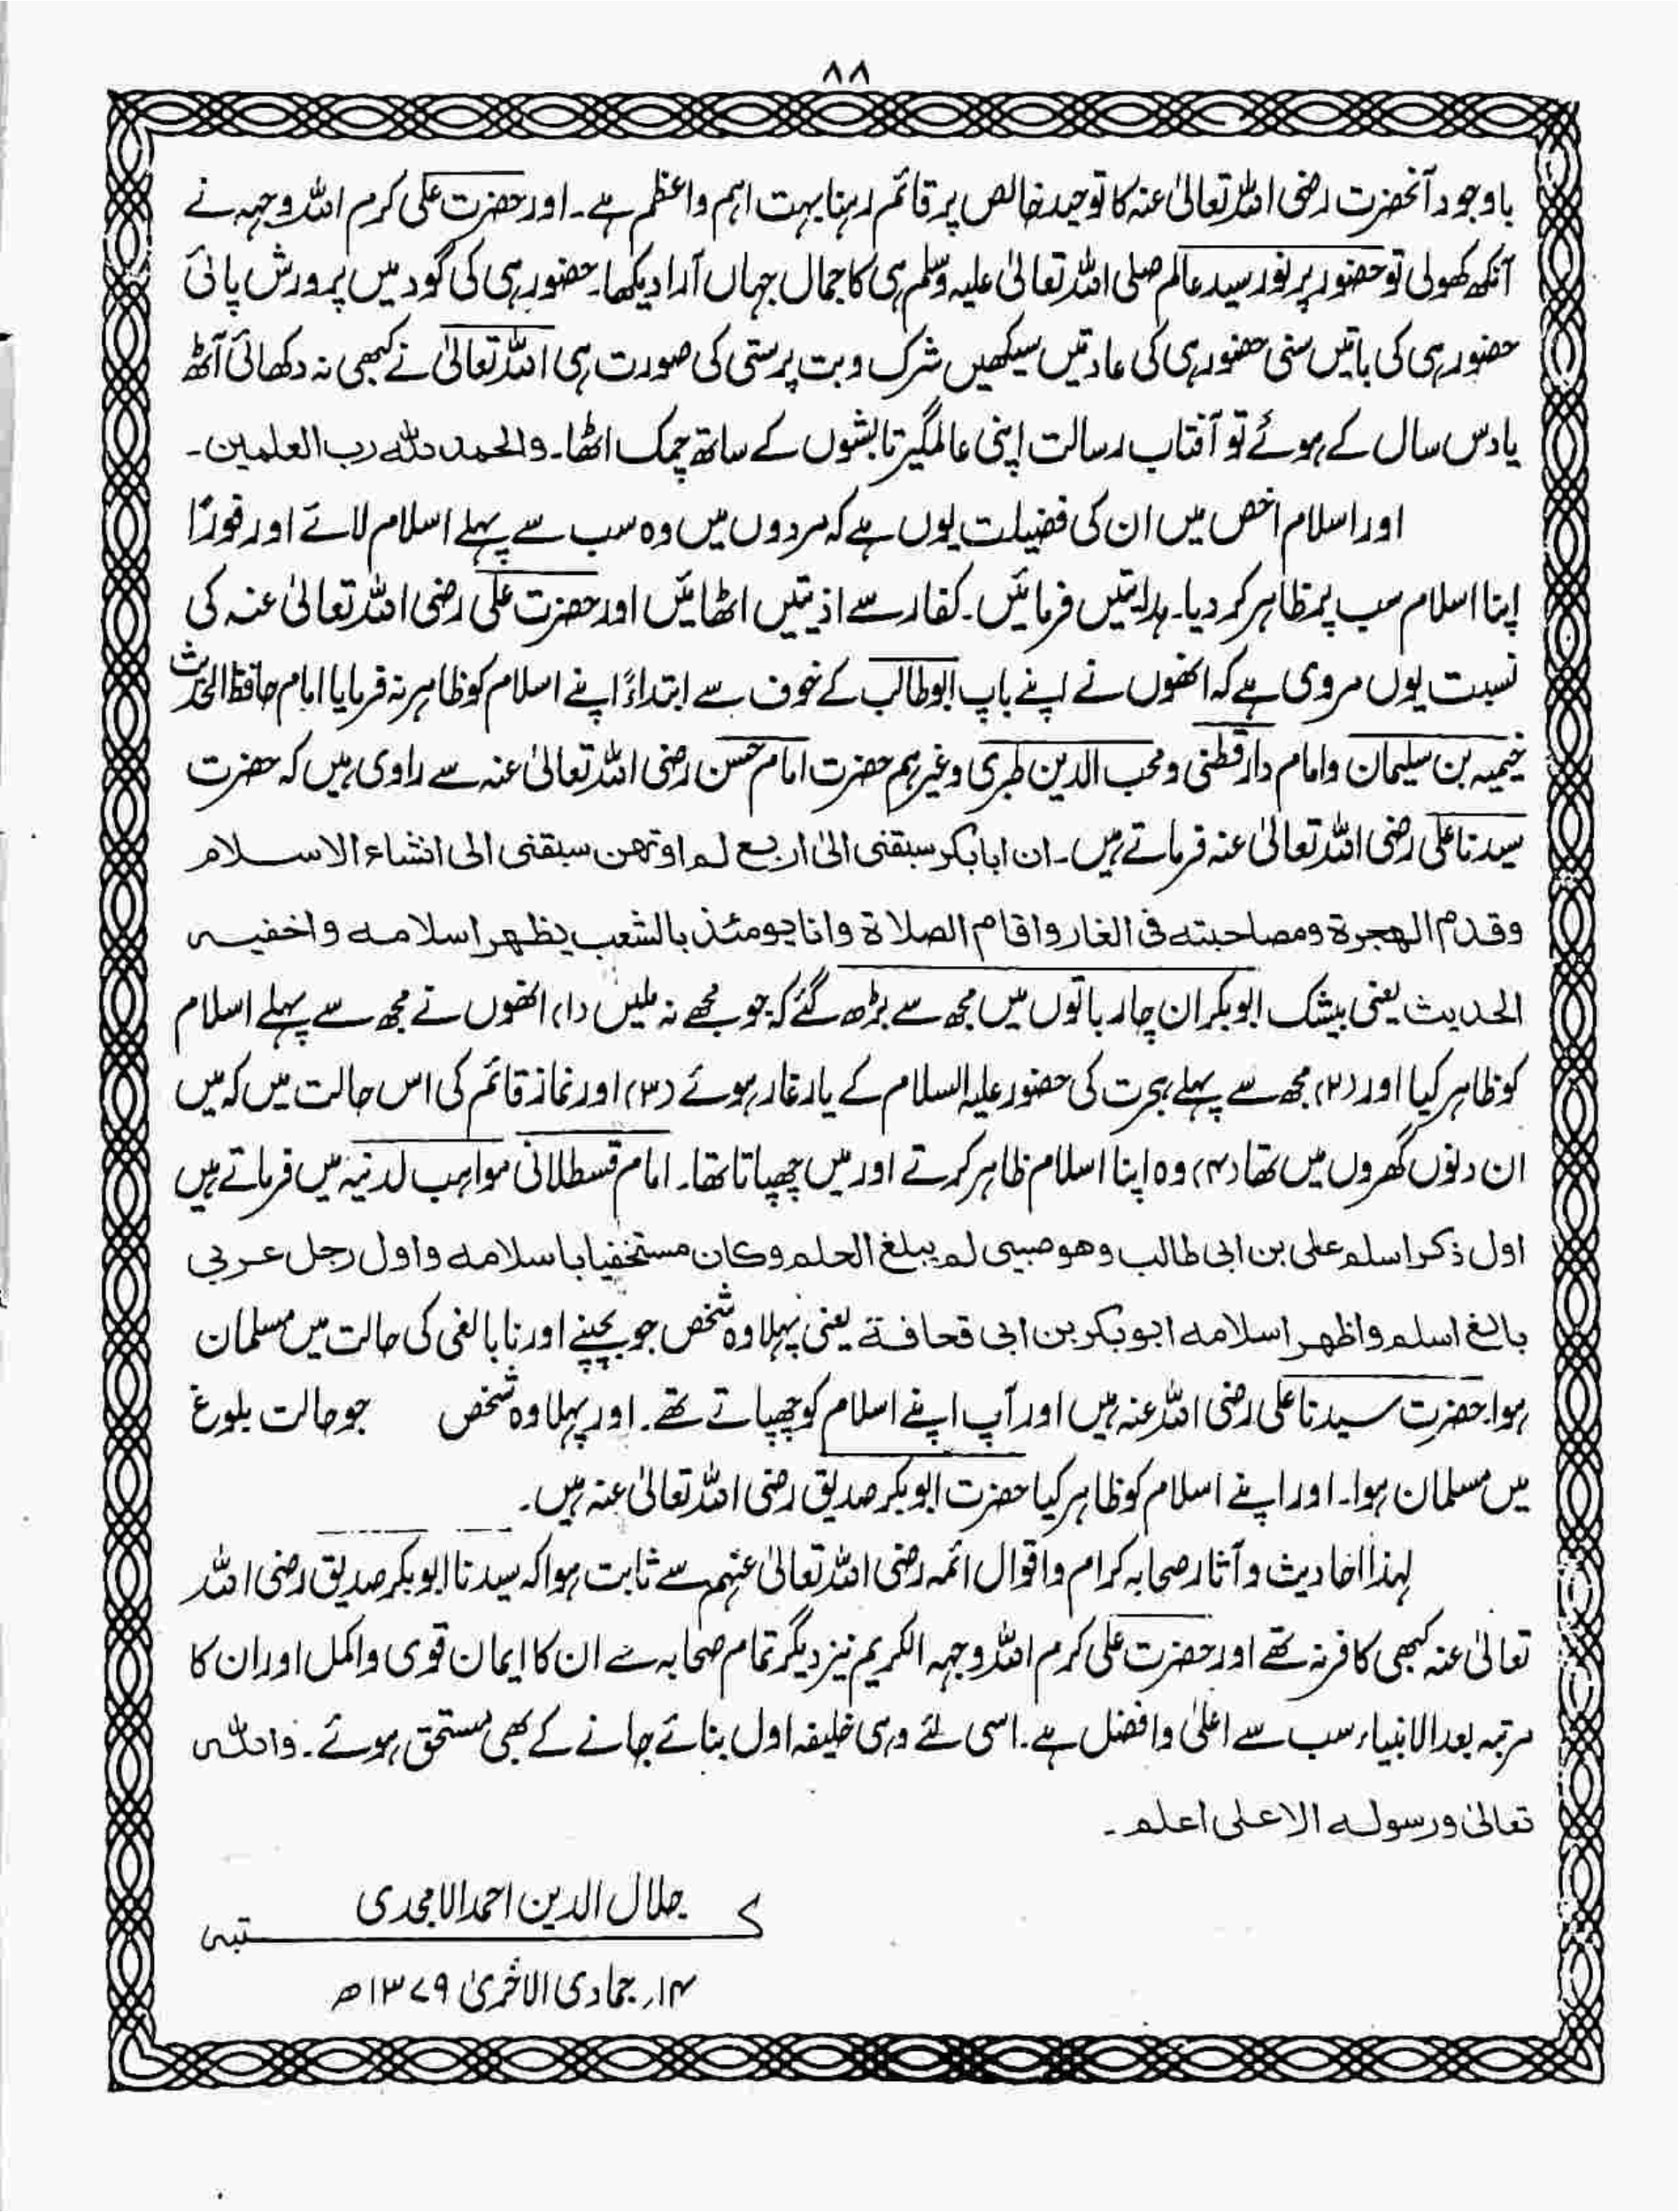 ۸۸
باوجود آنحضرت رضی اللہ تعالیٰ عنہ کا توحید خالص پر قائم رہنا بہت اہم واعظم ہے۔ اور حضرت علی کرم اللہ وجہہ نے
آنکھ کھولی تو حضور پر نور سید عالم صلی اللہ تعالیٰ علیہ وسلم ہی کا جمال جہاں آرا دیکھا۔ حضور ہی کی گود میں پرورش پائی
حضور ہی کی باتیں سنی حضور ہی کی عادتیں سیکھیں شرک وبت پرستی کی صورت ہی اللہ تعالیٰ نے کبھی نہ دکھائی آٹھ
یا دس سال کے ہوئے تو آفتاب رسالت اپنی عالمگیر تابشوں کے ساتھ چمک اٹھا۔ والحمد للہ رب العلمین۔
اور اسلام اخص میں ان کی فضیلت یوں ہے کہ مردوں میں وہ سب سے پہلے اسلام لائے اور فوراً
اپنا اسلام سب پر ظاہر کر دیا۔ ہدایتیں فرمائیں۔ کفار سے اذیتیں اٹھائیں اور حضرت علی رضی اللہ تعالیٰ عنہ کی
نسبت یوں مروی ہے کہ انھوں نے اپنے باپ ابوطالب کے خوف سے ابتداءً اپنے اسلام کو ظاہر نہ فرمایا امام حافظ الحدیث
خیمیہ بن سلیمان وامام دارقطنی ومحب الدین طبری وغیرہم حضرت امام حسن رضی اللہ تعالیٰ عنہ سے راوی ہیں کہ حضرت
سیدنا علی رضی اللہ تعالیٰ عنہ فرماتے ہیں۔ ان ابابکر سبقنی الیٰ اربع لم اوتهن سبقنی الی انشاء الاسلام
وقدم الهجرة ومصاحبته فی الغار واقام الصلاة وانا یومئذ بالشعب یظهر اسلامه واخفیه
الحدیث یعنی بیشک ابوبکر ان چار باتوں میں مجھ سے بڑھ گئے کہ جو مجھے نہ ملیں (۱) انھوں نے مجھ سے پہلے اسلام
کو ظاہر کیا اور (۲) مجھ سے پہلے ہجرت کی حضور علیہ السلام کے یار غار ہوئے (۳) اور نماز قائم کی اس حالت میں کہ میں
ان دنوں گھروں میں تھا (۴) وہ اپنا اسلام ظاہر کرتے اور میں چھپاتا تھا۔ امام قسطلانی مواہب لدنیہ میں فرماتے ہیں
اول ذکر اسلم علی بن ابی طالب وهو صبی لم یبلغ الحلم وکان مستخفیا باسلامه واول رجل عربی
بالغ اسلم واظهر اسلامه ابوبکر بن ابی قحافة یعنی پہلا وہ شخص جو بچپنے اور نابالغی کی حالت میں مسلمان
ہوا حضرت سیدنا علی رضی اللہ عنہ ہیں اور آپ اپنے اسلام کو چھپاتے تھے۔ اور پہلا وہ شخص جو حالت بلوغ
میں مسلمان ہوا۔ اور اپنے اسلام کو ظاہر کیا حضرت ابوبکر صدیق رضی اللہ تعالیٰ عنہ ہیں۔
لہذا احادیث وآثار صحابہ کرام واقوال ائمہ رضی اللہ تعالیٰ عنہم سے ثابت ہوا کہ سیدنا ابوبکر صدیق رضی اللہ
تعالیٰ عنہ کبھی کافر نہ تھے اور حضرت علی کرم اللہ وجہہ الکریم نیز دیگر تمام صحابہ سے ان کا ایمان قوی واکمل اور ان کا
مرتبہ بعد الانبیاء سب سے اعلیٰ وافضل ہے۔ اسی لئے وہی خلیفہ اول بنائے جانے کے بھی مستحق ہوئے۔ واللہ
تعالیٰ ورسوله الاعلی اعلم۔
کتبہ جلال الدین احمد الامجدی
۱۴؍ جمادی الاخریٰ ۱۳۷۹ھ